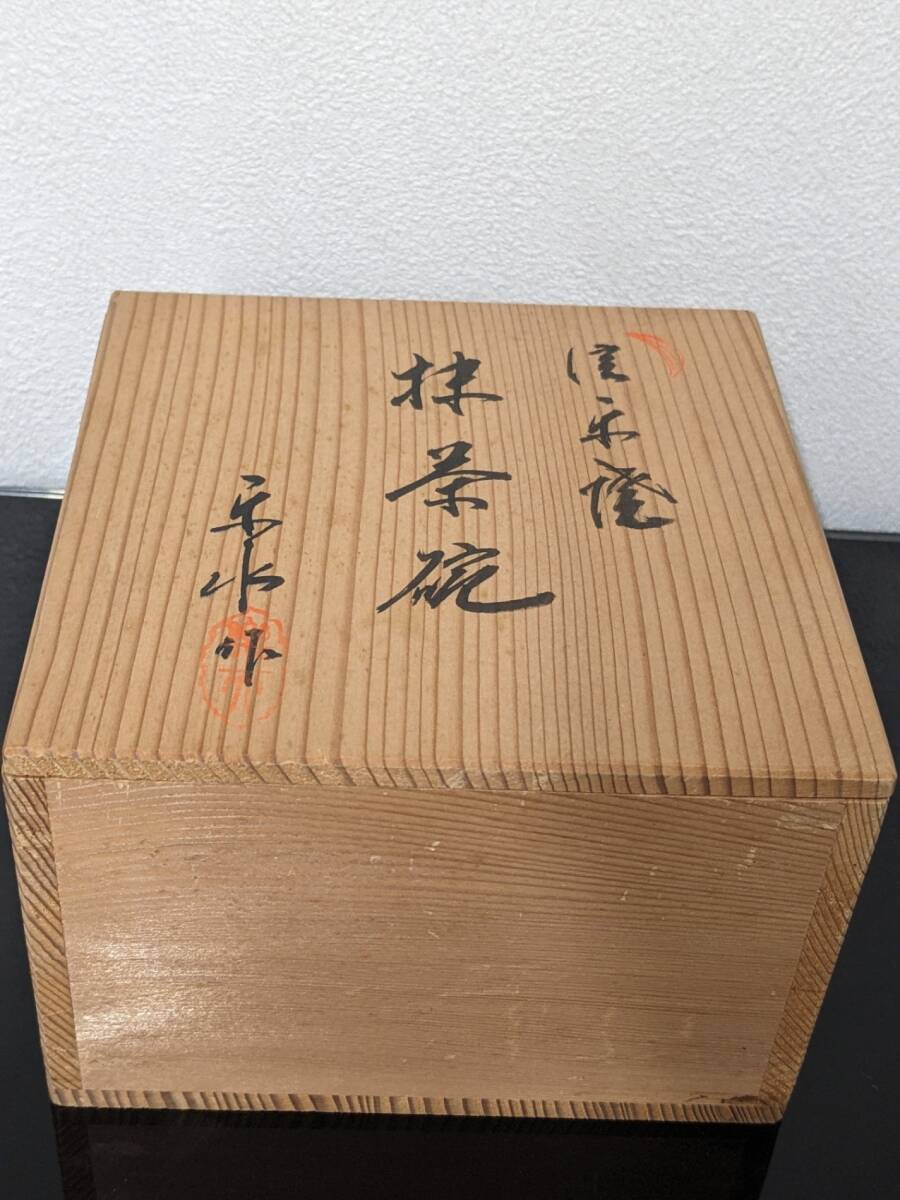 信楽焼
抹茶碗
楽水作